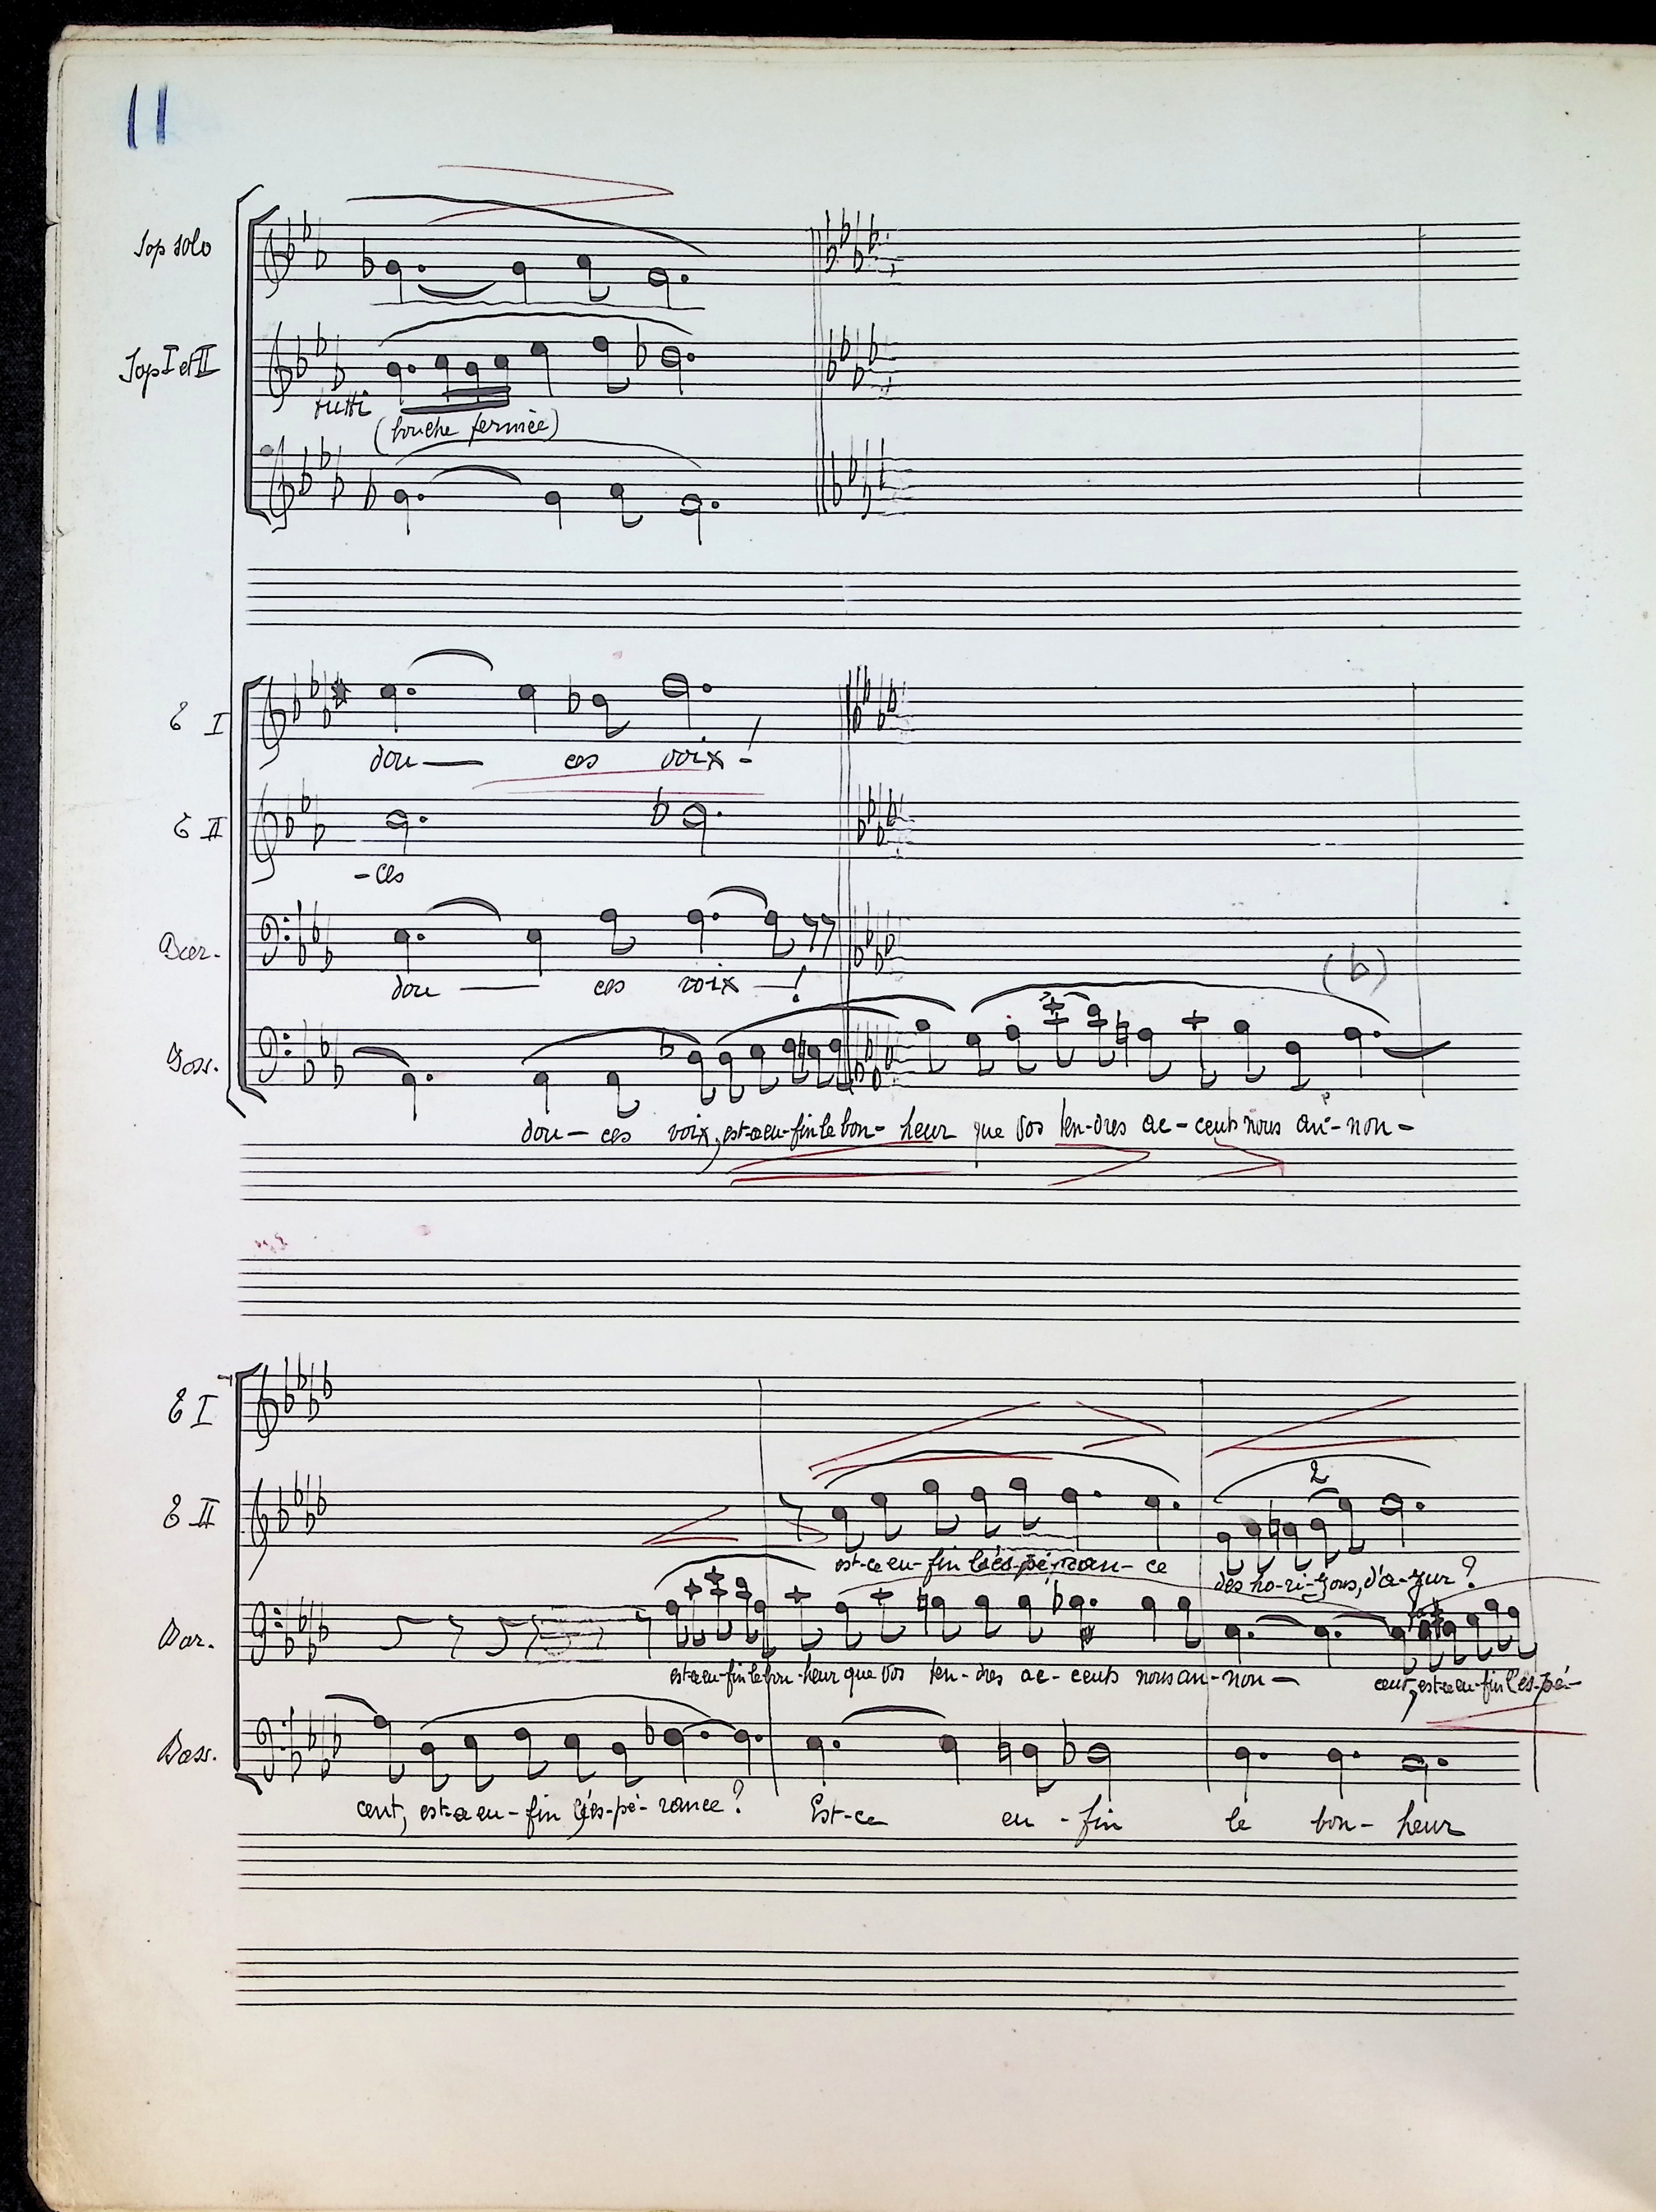 11
Sop solo
Sop I et II
tutti
(bouche fermée)
T I
dou — ces voix - !
T II
- ces
Bar.
dou — ces voix — !
(b)
Bass.
dou - ces voix, est-ce en-fin le bon- heur que vos ten-dres ac-cents nous an-non-
T I
T II
2
est-ce en-fin l'es-pé-ran-ce des ho-ri-zons, d'a-zur ?
Bar.
est-ce en-fin le bon-heur que vos ten-dres ac-cents nous an-non — cent, est-ce en-fin l'es-pé-
Bass.
cent, est-ce en-fin l'es-pé-rance ? Est-ce en-fin le bon-heur